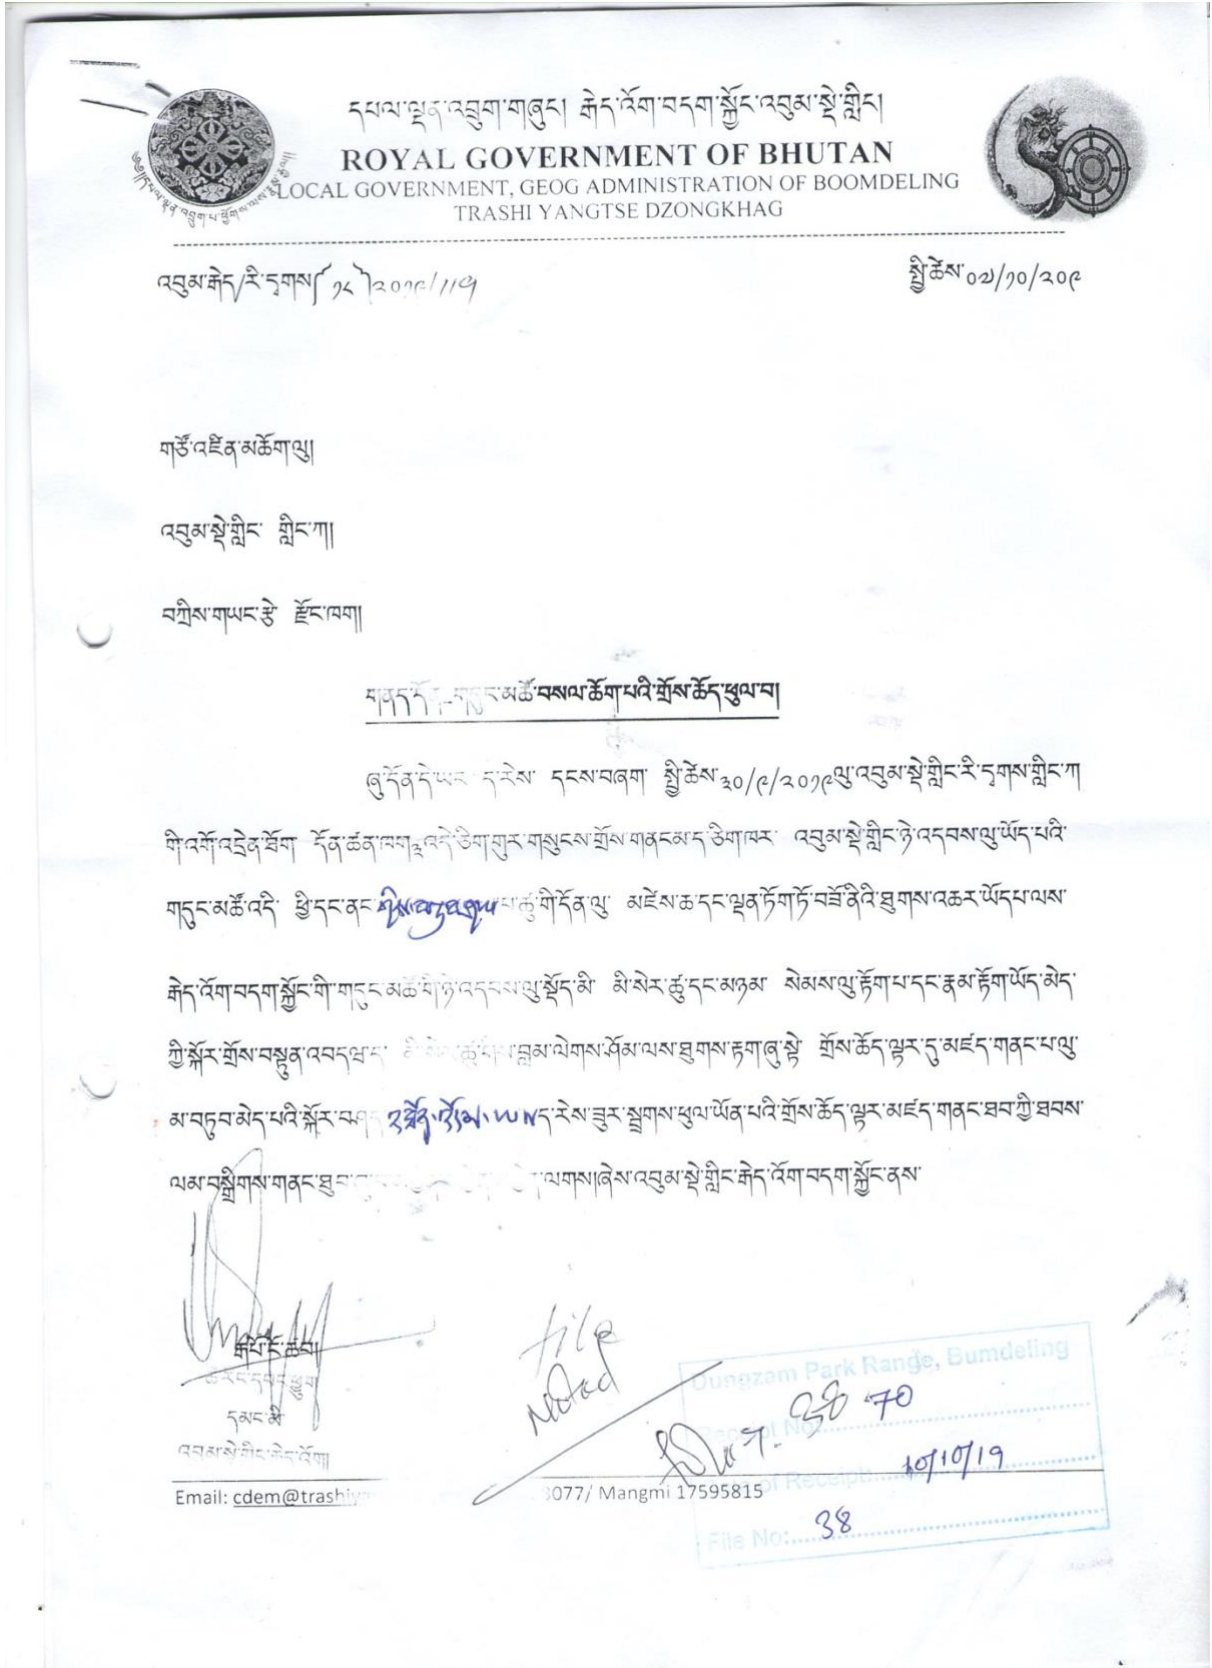 དཔལ་ལྡན་འབྲུག་གཞུང། རྒེད་འོག་བདག་སྐྱོང་འབུམ་སྡེ་གླིང།
ROYAL GOVERNMENT OF BHUTAN
LOCAL GOVERNMENT, GEOG ADMINISTRATION OF BOOMDELING
TRASHI YANGTSE DZONGKHAG
འབུམ་རྒེད/རི་དྭགས(༡༨)༢༠༡༩/
སྤྱི་ཚེས་༠༧/༡༠/༢༠༩
གཙོ་འཛིན་མཆོག་ལུ།
འབུམ་སྡེ་གླིང་ གླིང་ཀ།
བཀྲིས་གཡང་རྩེ་ རྫོང་ཁག།
གནད་དོན་ གདུང་མཚོ་བསལ་ཆོག་པའི་གྲོས་ཆོད་ཕུལ་བ།
ཞུ་དོན་དེ་ཡང་ ད་རེས་ དངས་བཞག སྤྱི་ཚེས་༣༠/༩/༢༠༡༩ལུ་འབུམ་སྡེ་གླིང་རི་དྭགས་གླིང་ཀ
གི་འགོ་འདྲེན་ཐོག དོན་ཚན་ཁག༣འདེ་ཅིག་གུར་གསུངས་གྲོས་གནངམ་ད་ཅིག་ཁར་ འབུམ་སྡེ་གླིང་ཉེ་འདབས་ལུ་ཡོད་པའི་
གདུང་མཚོ་འདི་ ཕྱི་དང་ནང་ པ་ཚུ་གི་དོན་ལུ་ མཛེས་ཆ་དང་ལྡན་ཏོག་ཏོ་བཟོ་ནིའི་ཐུགས་འཆར་ཡོདཔ་ལས་
རྒེད་འོག་བདག་སྐྱོང་གི་ གདུང་མཚོ་གི་ཉེ་འདབས་ལུ་སྡོད་མི་ མི་སེར་ཚུ་དང་མཉམ་ སེམས་ལུ་རྟོག་པ་དང་རྣམ་རྟོག་ཡོད་མེད་
ཀྱི་སྐོར་གྲོས་བསྟུན་འབདཝ་ད་ མི་སེར་ཚུ་གིས་བླམ་ལེགས་ཤོམ་ལས་ཐུགས་རྟག་ཞུ་སྟེ་ གྲོས་ཆོད་ལྟར་དུ་མཛད་གནང་པ་ལུ་
མ་བཏུབ་མེད་པའི་སྐོར་ ད་རེས་ཟུར་སྦྲགས་ཕུལ་ཡོན་པའི་གྲོས་ཆོད་ལྟར་མཛད་གནང་ཐབ་ཀྱི་ཐབས་
ལམ་བསྒྲིགས་གནང་ཐུབ་ ལགས།ཞེས་འབུམ་སྡེ་གླིང་རྒེད་འོག་བདག་སྐྱོང་ནས་
file
Noted
དམང་མི
འབུམ་སྡེ་གླིང་རྒེད་འོག།
Email: cdem@trashiya 3077/ Mangmi 17595815
Dungzam Park Range, Bumdeling
Receipt No: 70
Date of Receipt: 10/10/19
File No: 38